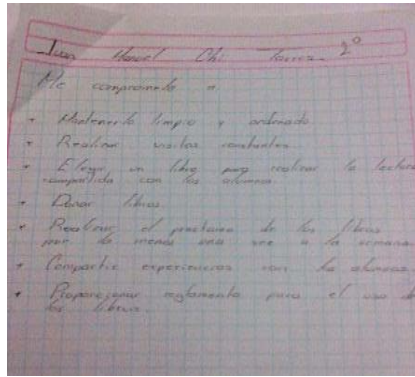 Juan Manuel Chi Torres 2°
Me comprometo a
• Mantenerlo limpio y ordenado
• Realizar visitas constantes
• Elegir un libro para realizar la lectura
compartida con los alumnos
• Donar libros.
• Realizar el préstamo de los libros
por lo menos una vez a la semana
• Compartir experiencias con los alumnos
• Proporcionar reglamento para el uso de
los libros.